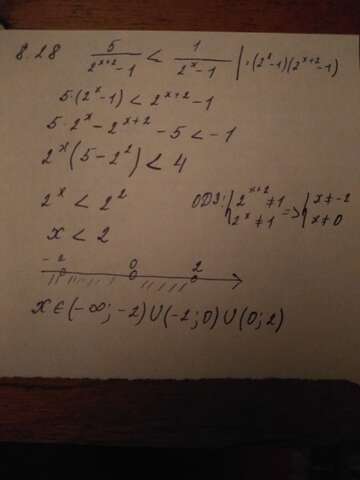 8.28 5/(2^(x+2)-1) < 1/(2^x-1) | ·(2^x-1)(2^(x+2)-1)
5·(2^x-1) < 2^(x+2)-1
5·2^x-2^(x+2)-5<-1
2^x(5-2^2)<4
2^x < 2^2 ОДЗ: { 2^(x+2)≠1 => { x≠-2
2^x≠1 x≠0
x < 2
-2 0 2
x∈(-∞;-2)∪(-2;0)∪(0;2)